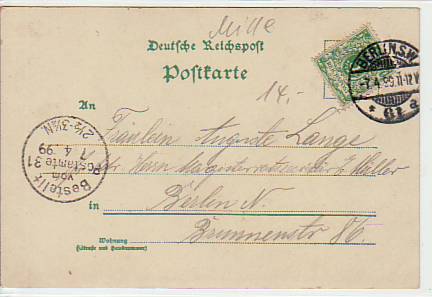 Mitte
Deutsche Reichspost
Postkarte
14.-
BERLIN, S.W.
-7.4.99.11-12V
* 61 a
An
Fräulein Auguste Lange
Herrn Müller
Bestellt
vom
Postamte 31
7 4 99
2½-3½N
in Berlin N.
Brunnenstr 86.
Wohnung
(Straße und Hausnummer)